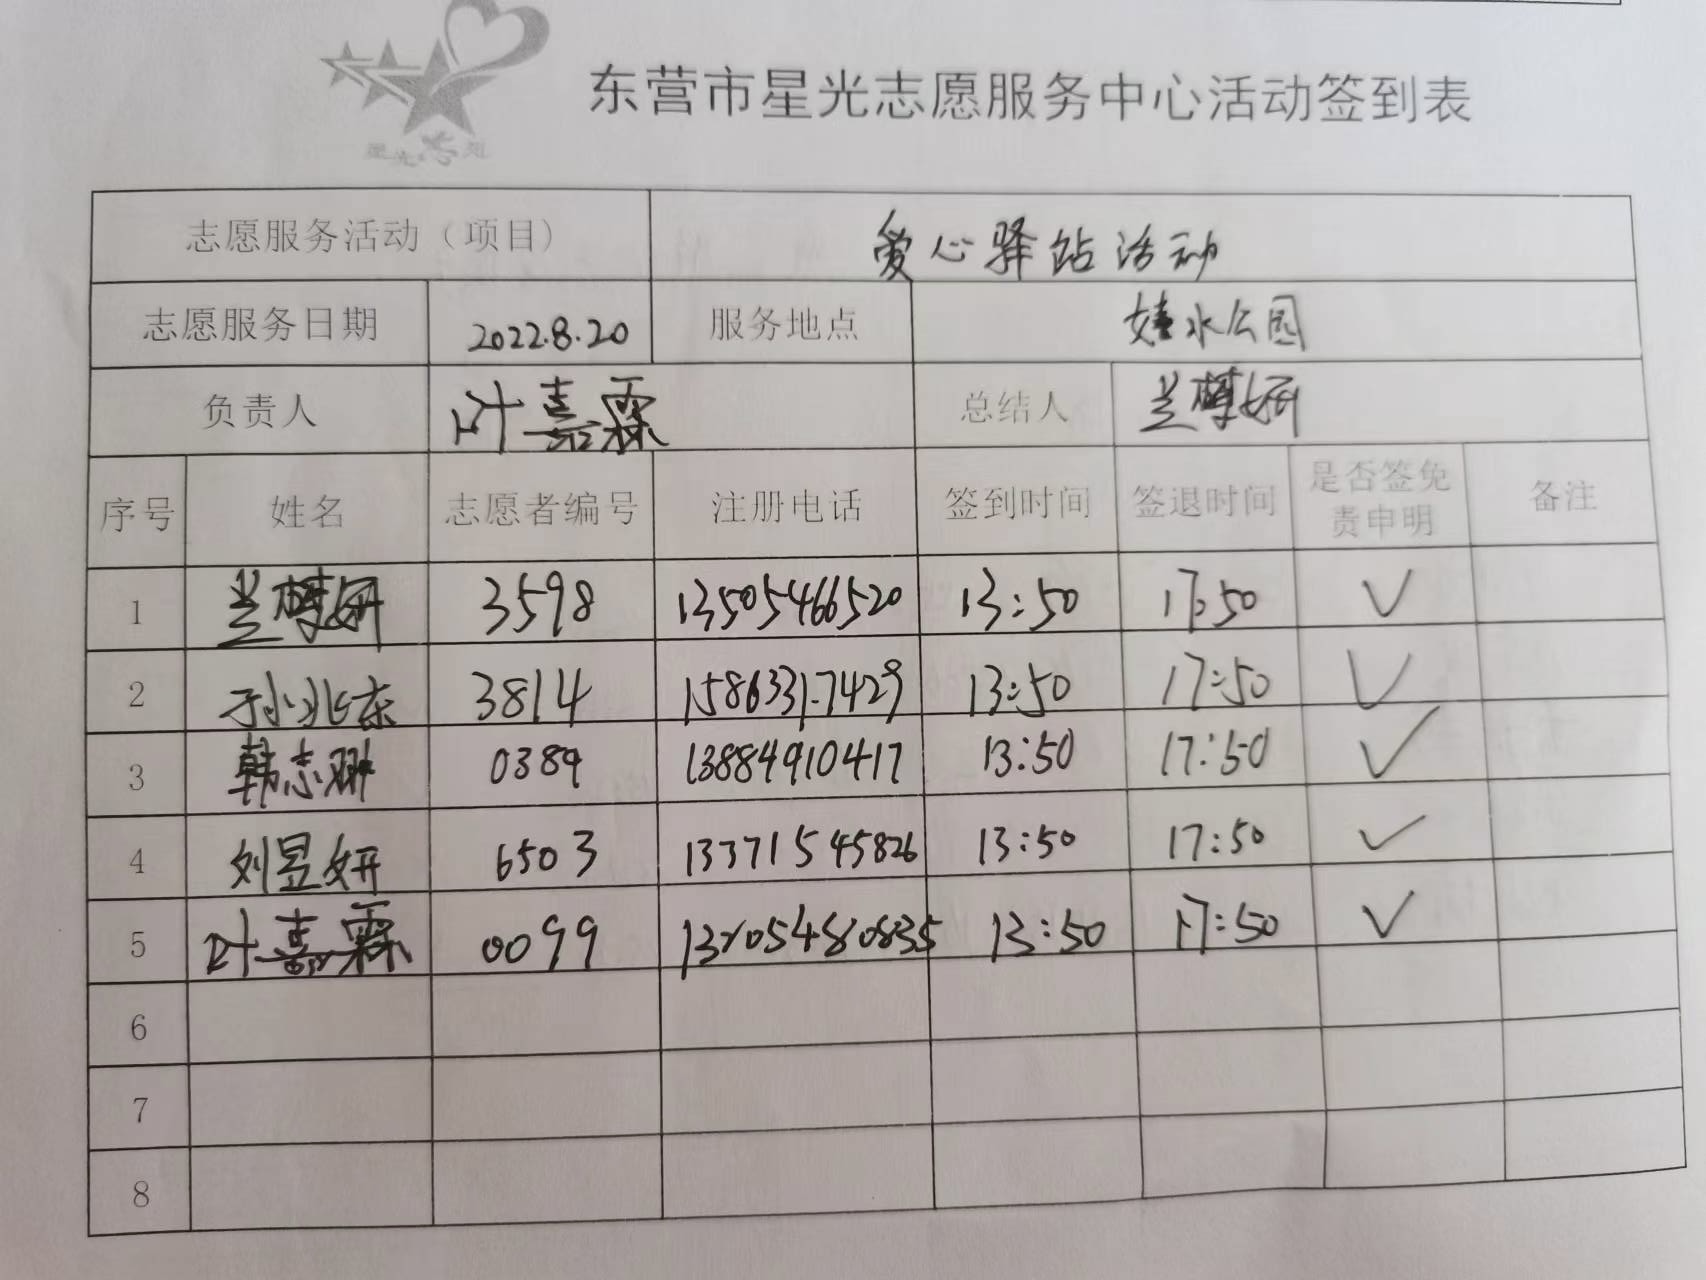 东营市星光志愿服务中心活动签到表
志愿服务活动（项目） 爱心驿站活动
志愿服务日期 2022.8.20 服务地点 水公园
负责人 叶嘉霖 总结人 兰妍
序号 姓名 志愿者编号 注册电话 签到时间 签退时间 是否签免责申明 备注
1 兰妍 3598 13505466520 13:50 17:50 ✓
2 孙兆东 3814 15863317429 13:50 17:50 ✓
3 韩志 0389 13884910417 13:50 17:50 ✓
4 刘昱妍 6503 13371545826 13:50 17:50 ✓
5 叶嘉霖 0099 13:50 17:50 ✓
6
7
8